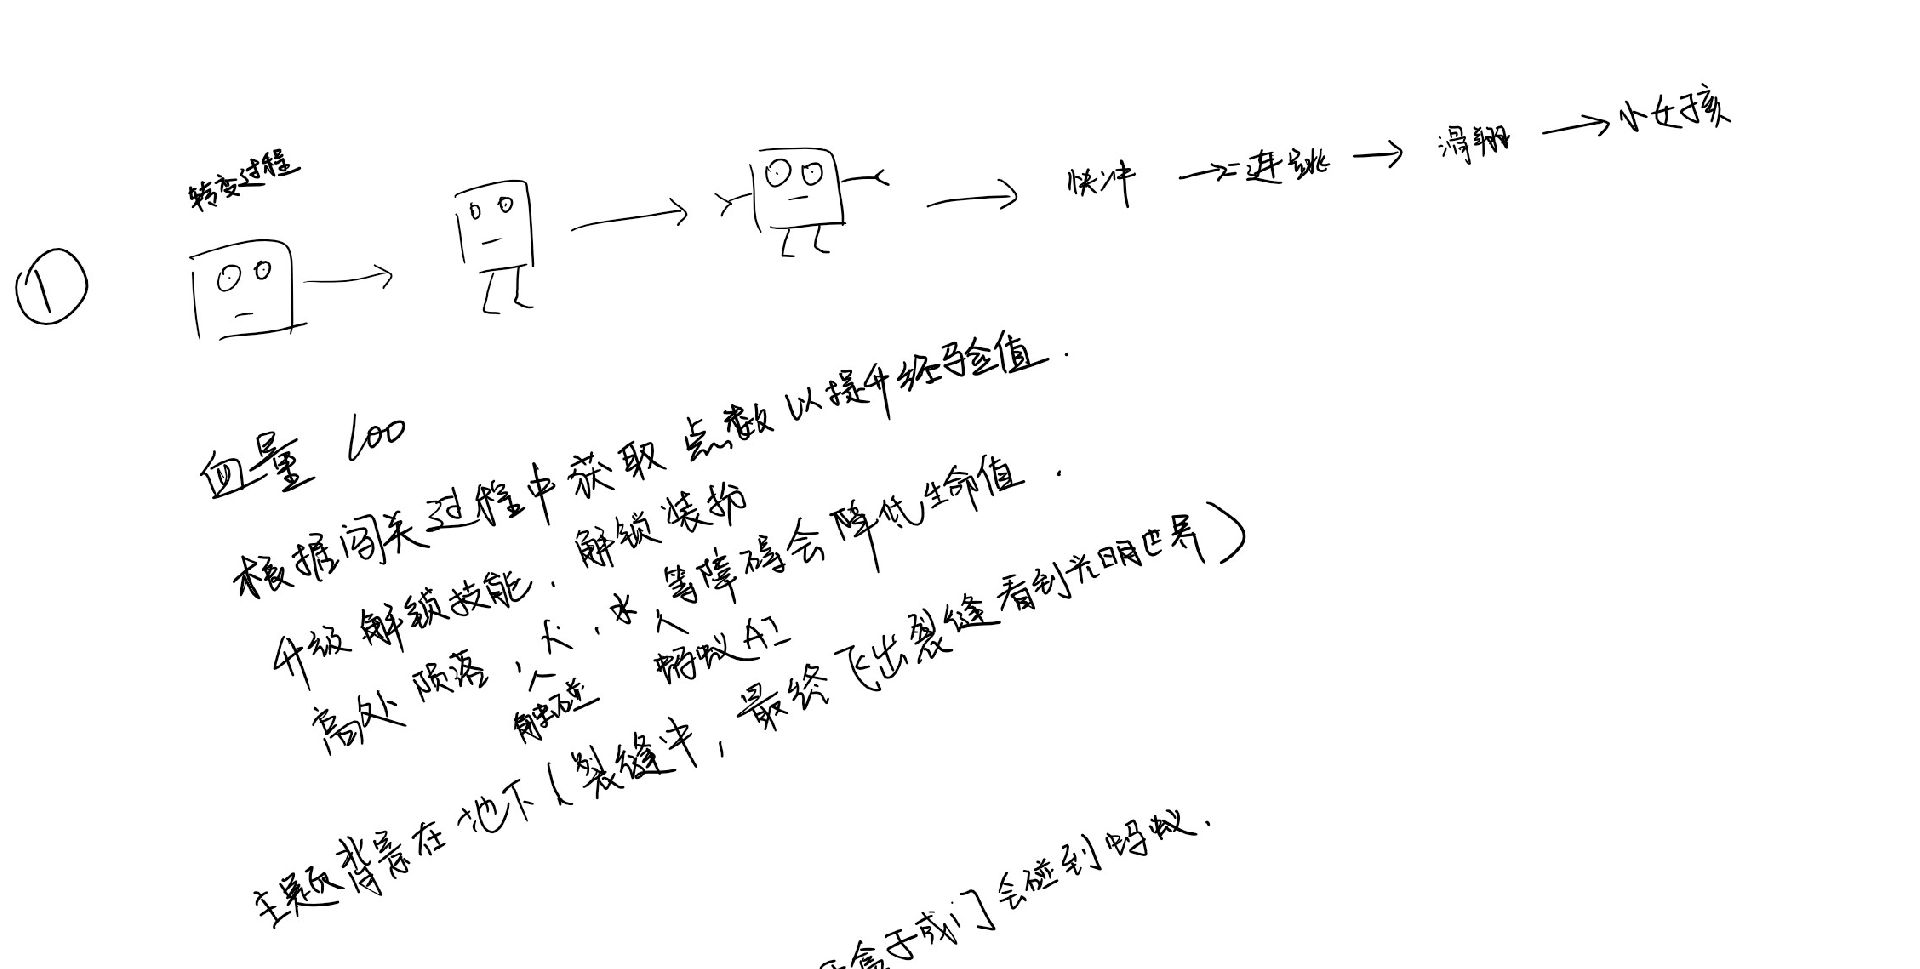 转变过程
① → → → 快冲 → 二连跳 → 滑翔 → 小女孩
血量 100
根据闯关过程中获取点数以提升经验值.
升级解锁技能、解锁装扮
高处陨落,火、水等障碍会降低生命值.
触碰 蚂蚁AI
主题背景在地下(裂缝中,最终飞出裂缝看到光明世界)
盒子或门会碰到蚂蚁.